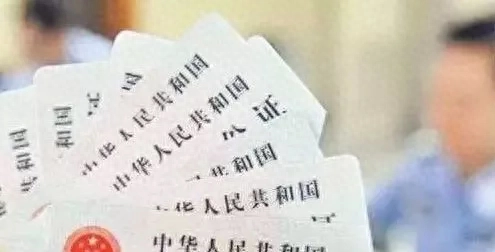 国
中华人民共和国
中华人民共和国
证
中华人民共和国
华人民共和国
中华人民共和国